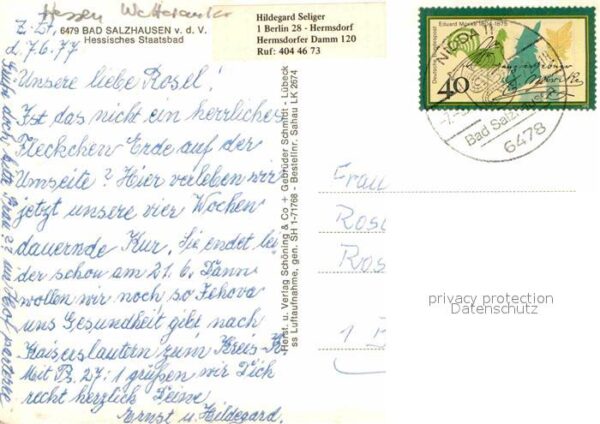 Hessen Wetterau
6479 BAD SALZHAUSEN v. d. V.
Hessisches Staatsbad
Z. Zt.
d. 7.6.77
Unsere liebe Rosel!
Ist das nicht ein herrliches
Fleckchen Erde auf der
Umseite? Hier verleben wir
jetzt unsere vier Wochen
dauernde Kur. Sie endet lei
der schon am 21.6. Dann
wollen wir noch so Jehova
uns Gesundheit gibt nach
Kaiserslautern zum Kreis-K
Mit Ps. 27:1 grüßen wir Dich
recht herzlich Deine
Ernst u. Hildegard.
Grüße doch bitte
Hildegard Seliger
1 Berlin 28 - Hermsdorf
Hermsdorfer Damm 120
Ruf: 404 46 73
Herst. u. Verlag Schöning & Co + Gebrüder Schmidt - Lübeck
ss Luftaufnahme, gen. SH 1-71768 - Bestellnr. Sahau LK 2674
Eduard Mörike 1804-1875
Deutsche Bundespost
40
NIDDA 1
Bad Salzhausen
6478
Frau
Rose
Ros
1 B
privacy protection
Datenschutz